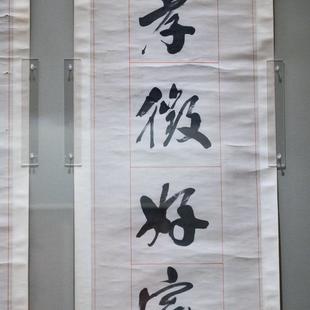 孝徵好